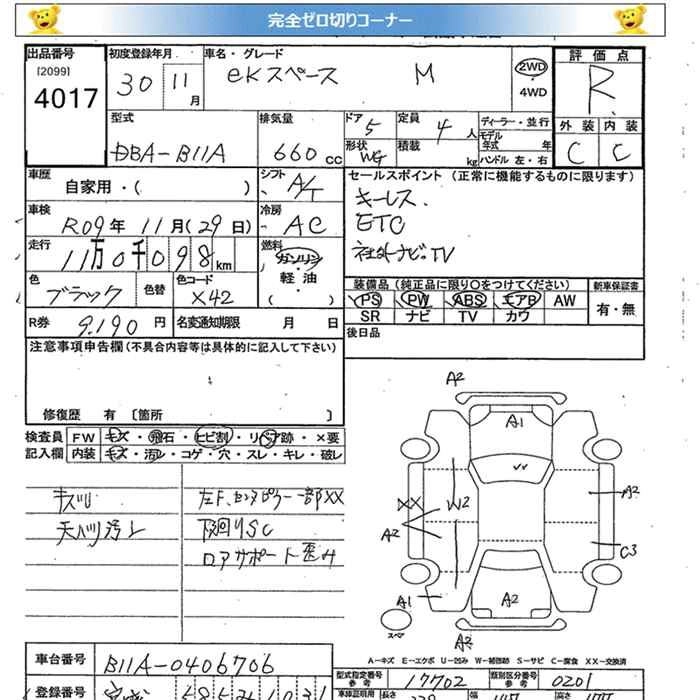 完全ゼロ切りコーナー
出品番号 初度登録年月 車名・グレード 評価点
[2099] 4017 30 11月 eKスペース M 2WD・4WD R
型式 排気量 ドア 定員 ディーラー・並行 外装 内装
DBA-B11A 660cc 5 4人 モデル年式 年 C C
形状 WG 積載 kg ハンドル 左・右
車歴 自家用・( ) シフト A/T セールスポイント (正常に機能するものに限ります)
キーレス.
車検 R09年 11月(29日) 冷房 AC ETC
走行 11万0千098km 燃料 ガソリン・軽油・( ) 社外ナビ.TV
色 ブラック 色替 色コード X42
装備品 (純正品に限り○をつけてください) 新車保証書
PS PW ABS エアB AW 有・無
SR ナビ TV カワ
R券 9.190円 名変通知期限 月 日
後日品
注意事項申告欄 (不具合内容等は具体的に記入して下さい)
修復歴 有 [箇所 ]
検査員記入欄 FW キズ・飛石・ヒビ割・リペア跡・×要
内装 キズ・汚レ・コゲ・穴・スレ・キレ・破レ
キズ 左F,センタピラー一部XX
天バリ汚レ 下廻りSC
コアサポート歪み
A2
A1
A2
XX W2
A2
C3
A1 A2
スペア
A2
A-キズ E-エクボ U-凹み W-補修跡 S-サビ C-腐食 XX-交換済
車台番号 B11A-0406706
型式指定番号 参考 17702 類別区分番号 参考 0201
登録番号
車検証明用 参考 長さ 幅 高さ